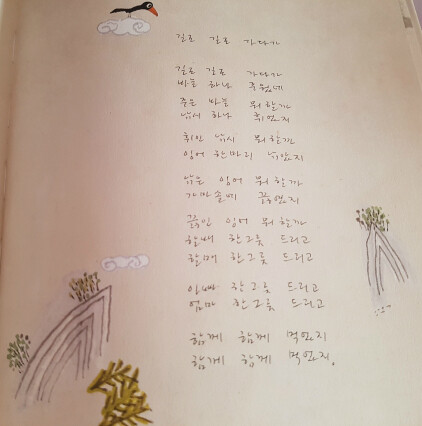 길로 길로 가다가
길로 길로 가다가
바늘 하나 주웠네
주운 바늘 뭐 할까
낚시 하나 휘었지
휘인 낚시 뭐 할까
잉어 한마리 낚았지
낚은 잉어 뭐 할까
가마솥에 끓였지
끓인 잉어 뭐 할까
할배 한그릇 드리고
할매 한그릇 드리고
아빠 한그릇 드리고
엄마 한그릇 드리고
함께 함께 먹었지
함께 함께 먹었지.